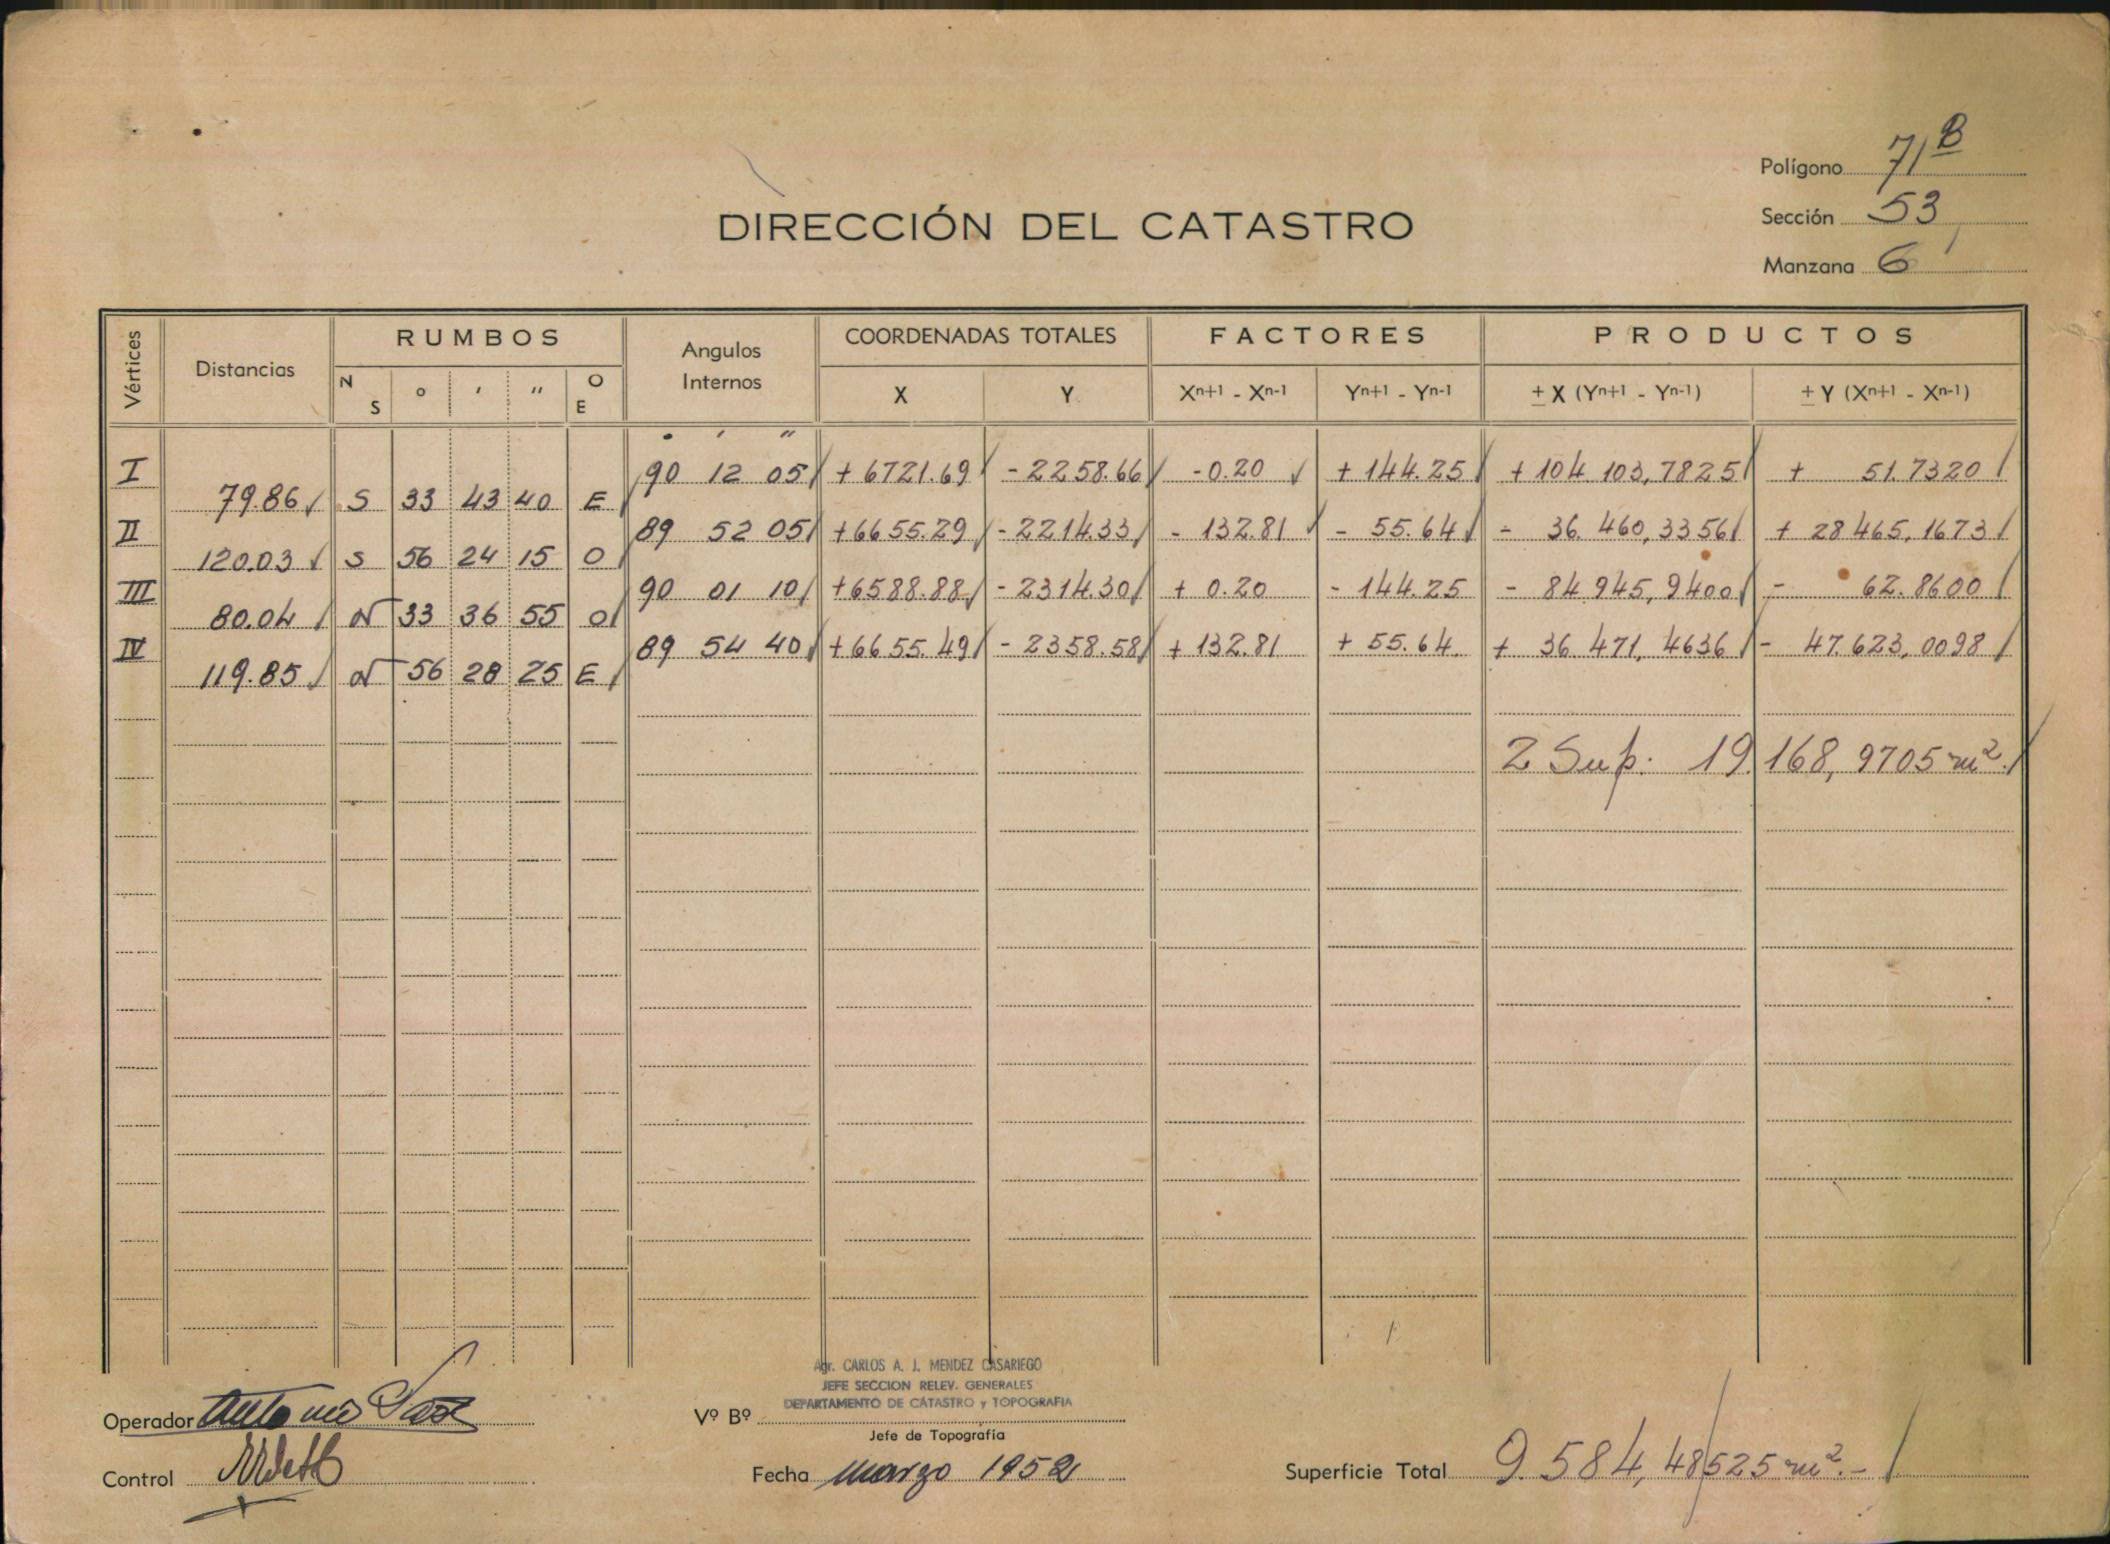 Polígono 71 B
Sección 53
Manzana 6
DIRECCIÓN DEL CATASTRO
Vértices Distancias RUMBOS Angulos Internos COORDENADAS TOTALES FACTORES PRODUCTOS
N S ° ' " O E X Y Xn+1 - Xn-1 Yn+1 - Yn-1 ± X (Yn+1 - Yn-1) ± Y (Xn+1 - Xn-1)
° ' "
I 90 12 05 + 6721.69 - 2258.66 - 0.20 + 144.25 + 104 103,7825 + 51.7320
79.86 S 33 43 40 E
II 89 52 05 + 6655.29 - 2214.33 - 132.81 - 55.64 - 36.460,3356 + 28 465,1673
120.03 S 56 24 15 O
III 90 01 10 + 6588.88 - 2314.30 + 0.20 - 144.25 - 84 945,9400 - 62.8600
80.04 N 33 36 55 O
IV 89 54 40 + 6655.49 - 2358.58 + 132.81 + 55.64 + 36 471,4636 - 47.623,0098
119.85 N 56 28 25 E
2 Sup: 19.168,9705 m²
Agr. CARLOS A. J. MENDEZ CASARIEGO
JEFE SECCION RELEV. GENERALES
DEPARTAMENTO DE CATASTRO y TOPOGRAFIA
Operador Antonio
Vº Bº
Jefe de Topografía
Control
Fecha marzo 1952
Superficie Total 9.584,48525 m².-